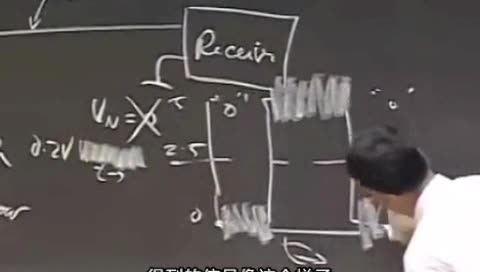 Receiv
V_N = X
5
"0"
"0"
0.2V
2.5
t→
0
得到的信号像这个样子